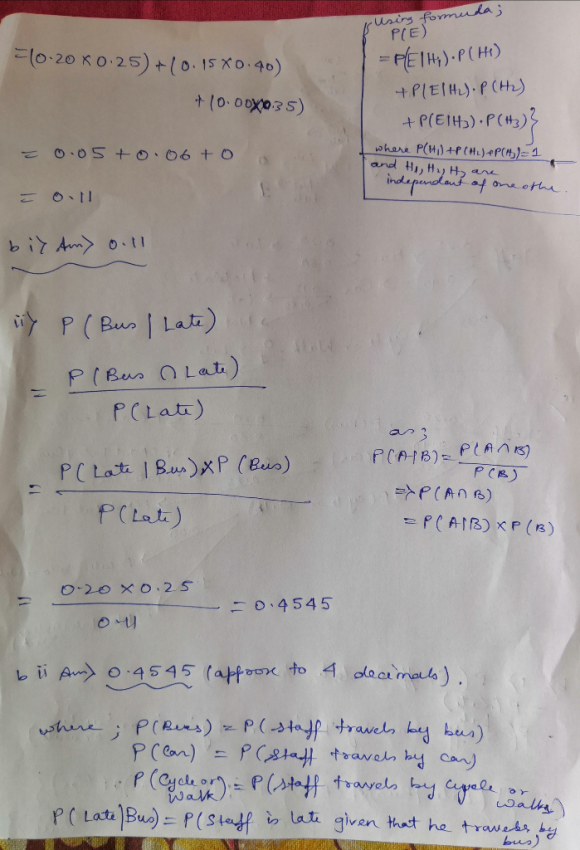 =(0.20 × 0.25) + (0.15 × 0.40)
+ (0.00×0.35)
= 0.05 + 0.06 + 0
= 0.11
b i) Ans) 0.11
Using formula;
P(E)
= P(E|H₁). P(H₁)
+ P(E|H₂). P(H₂)
+ P(E|H₃). P(H₃)}
where P(H₁)+P(H₂)+P(H₃)=1
and H₁, H₂, H₃ are
independent of one other.
ii) P( Bus | Late)
= P( Bus ∩ Late)
P(Late)
= P( Late | Bus) × P(Bus)
P(Late)
as;
P(A|B) = P(A∩B)
P(B)
=> P(A∩B)
= P(A|B) × P(B)
= 0.20 × 0.25
0.11
= 0.4545
b ii Ans) 0.4545 (approx to 4 decimals).
where ; P(Bus) = P( staff travels by bus)
P(Car) = P( staff travels by car)
P(Cycle or Walk) = P( staff travels by cycle or walks)
P( Late|Bus) = P( Staff is late given that he travels by
bus)